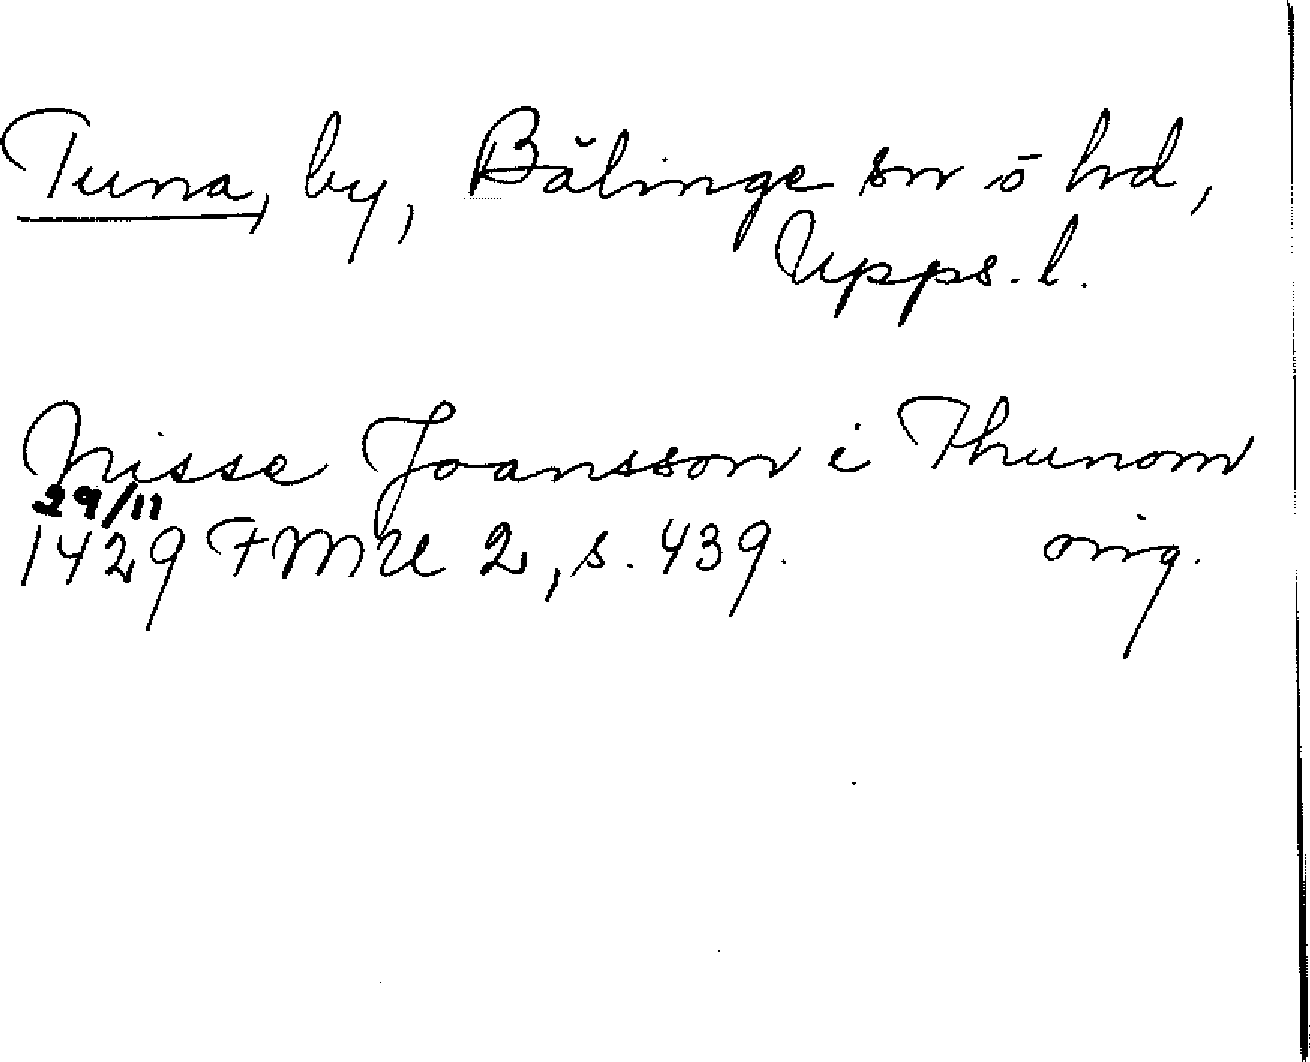 Tuna, by, Bälinge sn o hd,
Upps. l.
Nisse Joansson i Thunom
29/11
1429 FMU 2, s. 439. orig.